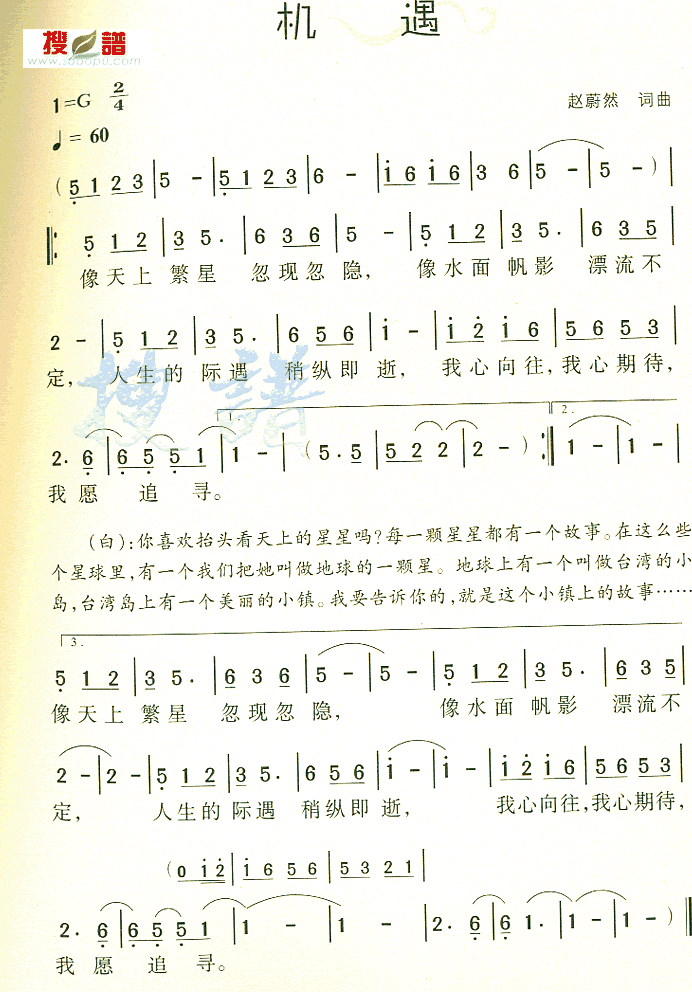 机 遇
搜 譜
www.sooopu.com
1=G 2/4
赵蔚然 词曲
♩= 60
( 5 1 2 3 | 5 - | 5 1 2 3 | 6 - | i 6 i 6 | 3 6 | 5 - | 5 - ) |
‖: 5 1 2 | 3 5 . | 6 3 6 | 5 - | 5 1 2 | 3 5 . | 6 3 5 |
像天上 繁星 忽现忽隐， 像水面 帆影 漂流不
2 - | 5 1 2 | 3 5 . | 6 5 6 | i - | i 2 i 6 | 5 6 5 3 |
定， 人生的 际遇 稍纵即逝， 我心向往，我心期待，
搜譜
1. 2.
2 . 6 | 6 5 5 1 | 1 - | ( 5 . 5 | 5 2 2 | 2 - ) :‖ 1 - | 1 - |
我愿 追寻。
(白)：你喜欢抬头看天上的星星吗？每一颗星星都有一个故事。在这么些
个星球里，有一个我们把她叫做地球的一颗星。地球上有一个叫做台湾的小
岛，台湾岛上有一个美丽的小镇。我要告诉你的，就是这个小镇上的故事……
3.
5 1 2 | 3 5 . | 6 3 6 | 5 - | 5 - | 5 1 2 | 3 5 . | 6 3 5 |
像天上 繁星 忽现忽隐， 像水面 帆影 漂流不
2 - | 2 - | 5 1 2 | 3 5 . | 6 5 6 | i - | i - | i 2 i 6 | 5 6 5 3 |
定， 人生的 际遇 稍纵即逝， 我心向往，我心期待，
( 0 i 2 | i 6 5 6 | 5 3 2 1 |
2 . 6 | 6 5 5 1 | 1 - | 1 - | 2 . 6 | 6 1 . | 1 - | 1 - ) ‖
我愿 追寻。